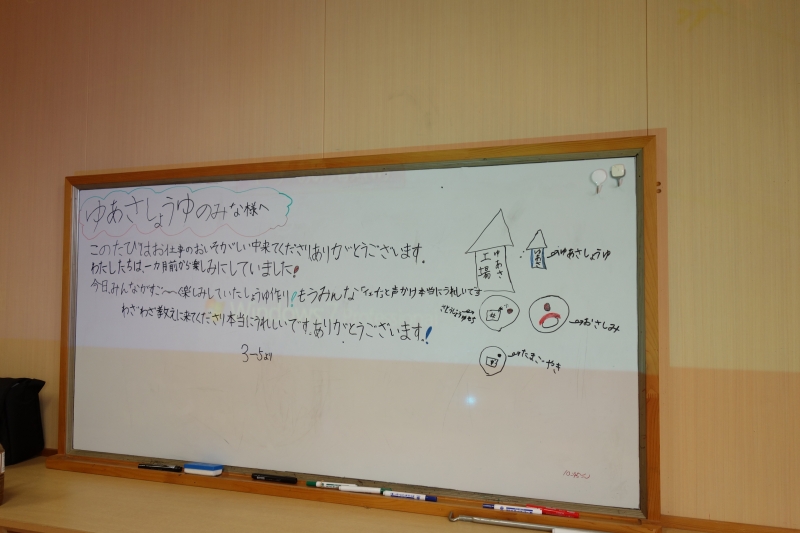 ゆあさしょうゆのみな様へ
このたびはお仕事のおいそがしい中来てくださりありがとうございます。
わたしたちは、一カ月前から楽しみにしていました!
今日、みんながすご〜〜く楽しみしていたしょうゆ作り!もうみんな「イェだと声かけ本当にうれしいです
わざわざ教えに来てくださり本当にうれしいです。ありがとうございます!
3-5より
ゆあさ
工場
ゆあさ
ゆあさしょうゆ
おさしみ
たまごやき